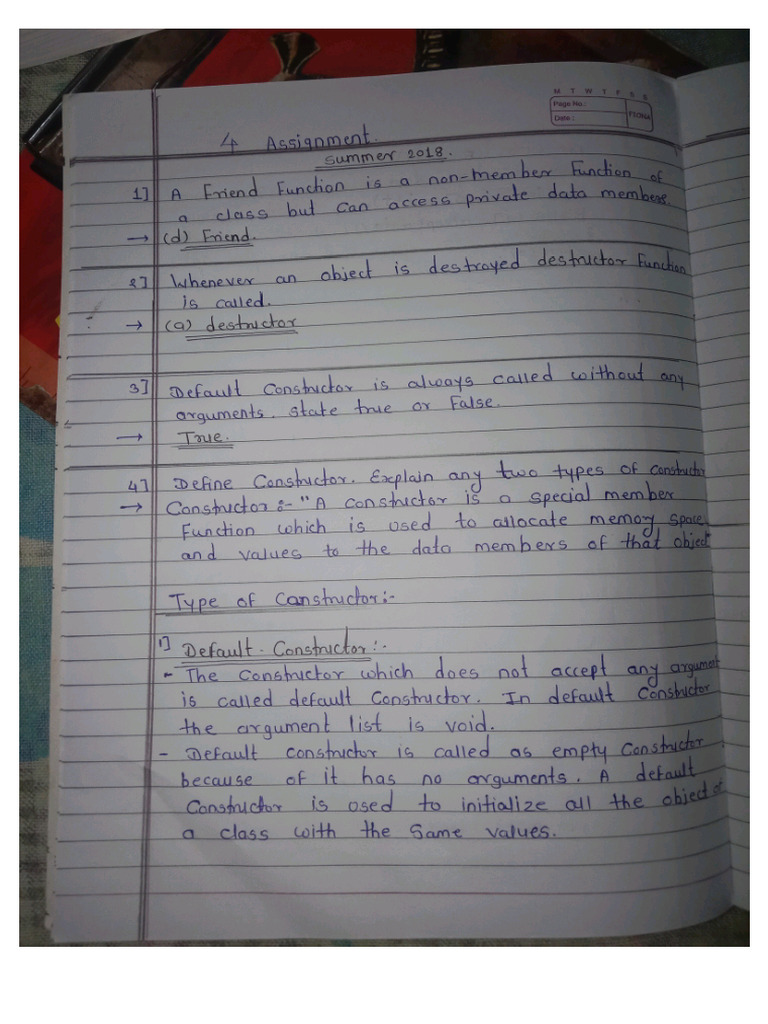 M T W T F S S
Page No.:
Date :
FIONA
4 Assignment.
Summer 2018.
1] A Friend Function is a non-member Function of
a class but can access private data members.
→ (d) Friend.
2] Whenever an object is destroyed destructor Function
is called.
→ (a) destructor
3] Default Constructor is always called without any
arguments. State true or False.
→ True.
4] Define Constructor. Explain any two types of constructor
→ Constructor :- "A constructor is a special member
Function which is used to allocate memory space
and values to the data members of that object
Type of Constructor:-
1] Default Constructor:-
- The Constructor which does not accept any argument
is called default Constructor. In default Constructor
the argument list is void.
- Default constructor is called as empty Constructor
because of it has no arguments. A default
Constructor is used to initialize all the object of
a class with the Same values.